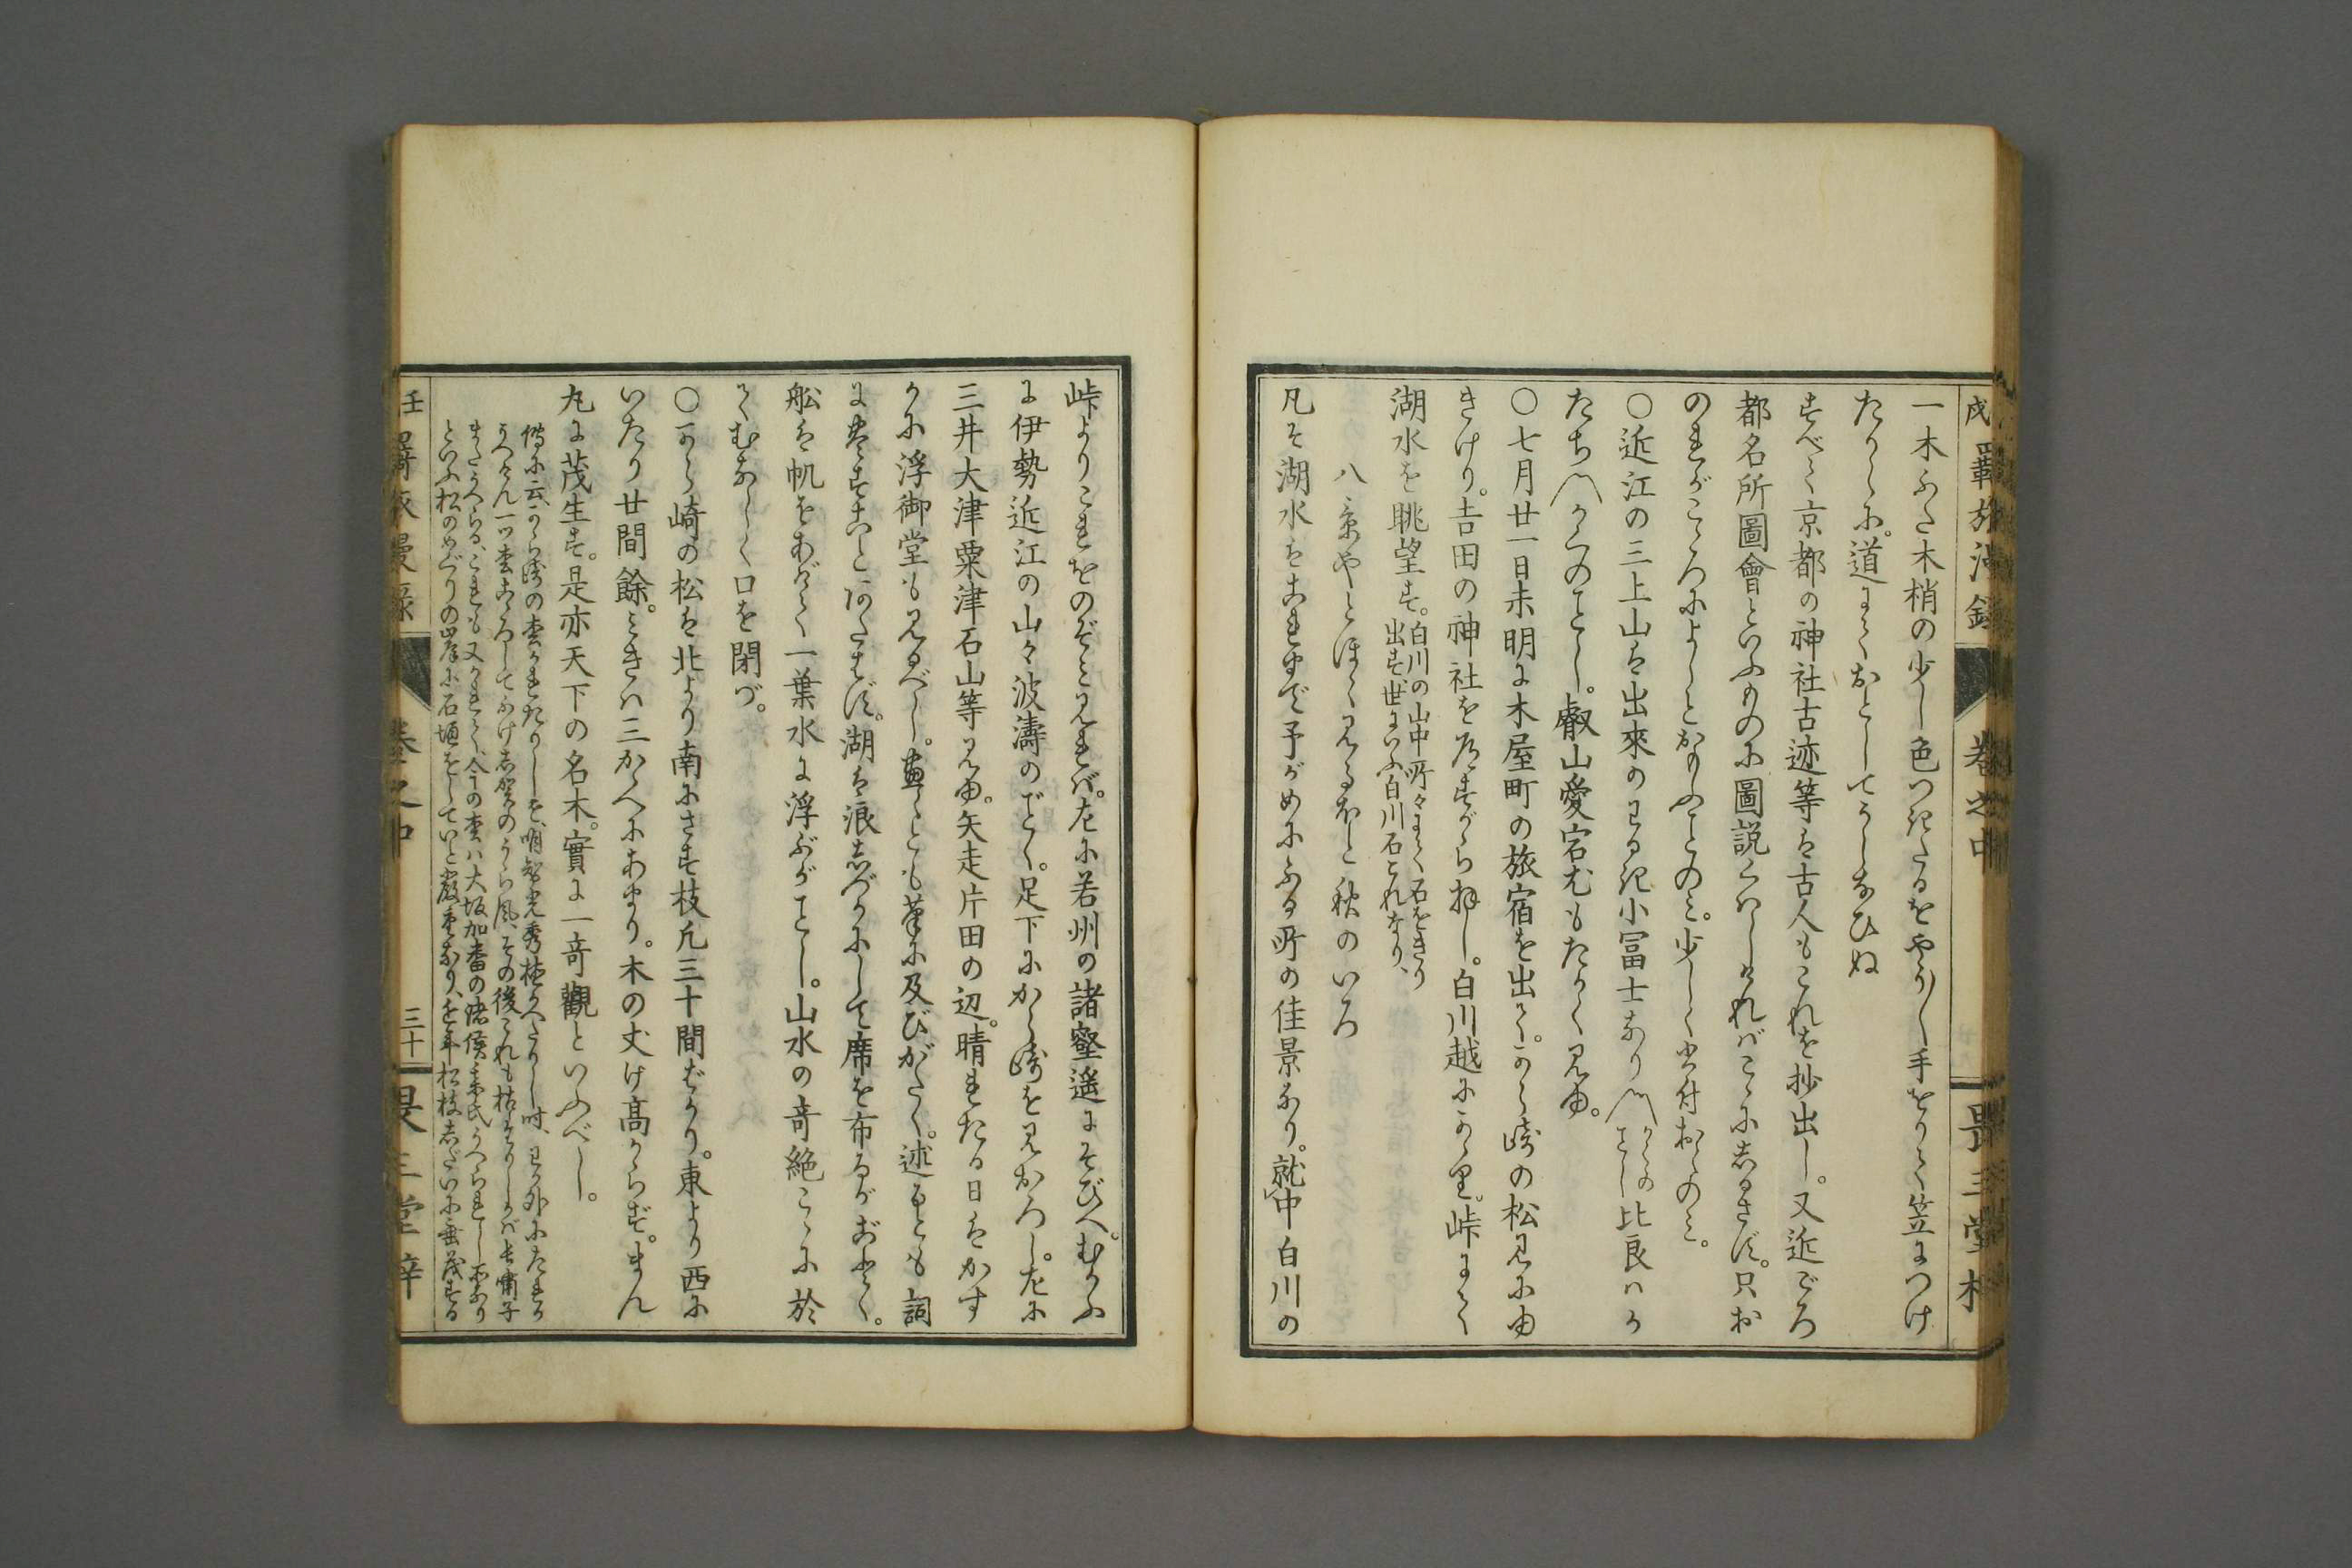 戌羇旅漫録 巻之中 畏三堂梓
一木ふた木梢の少し色つきたるをやう〳〵手をりて笠につけ
たりしに。道にておとしてうしなひぬ
すべて京都の神社古迹等は古人もこれを抄出し。又近ごろ
都名所圖會といふものに圖説くはしければこゝにしるさず。只お
のれがこゝろによしとおもふことのミ。少しく書付おくのミ。
〇近江の三上山は出來のわるき小冨士なり〽からの さし 比良はう
たち〽うへのごとし。叡山愛宕尤もたかく見ゆ。
〇七月廿一日未明に木屋町の旅宿を出て。から崎の松見にゆ
きけり。吉田の神社を道すがら拝し。白川越にかゝる。峠にて
湖水を眺望す。白川の山中所々にて石をきり
出す、世にいふ白川石これなり、
八景やとほく見るほど秋のいろ
凡そ湖水をこれまで予がめにふる所の佳景なり。就中白川の
峠よりこれをのぞミ見れバ。左に若州の諸壑遥にそびへ。むかふ
に伊勢近江の山々波濤のごとく。足下にから崎を見おろし。右に
三井大津粟津石山等見ゆ。矢走片田の辺。晴れたる日はかす
かに浮御堂も見るべし。畫くとも筆に及びがたく。述るとも詞
に尽すことあたはず。湖は浪しづかにして席を布るがごとく。
舩は帆をあげて一葉水に浮ぶがごとし。山水の竒絶こゝに於
てむなしく口を閉づ。
〇から崎の松は北より南にさす枝凡三十間ばかり。東より西に
いたり廿間餘。ミきハ三かゝへにあまり。木の丈け髙からず。まん
丸に茂生す。是亦天下の名木。實に一竒觀といふべし。
傳に云、から崎の松かれたりしを、明智光秀植かへたりし時、われ外にたれか
うへけん一ツ松こゝろしてふけ志賀のうら風、その後これも枯たりしかば長嘯子
またうへらる、これも又かれて、今の松ハ大坂加番の諸侯某氏うへられし所なり
といふ松のめぐりの岸に石垣をしていと嚴重なり、近年松枝しだいに垂茂する
壬 羇旅漫録 巻之中 三十一 畏三堂梓